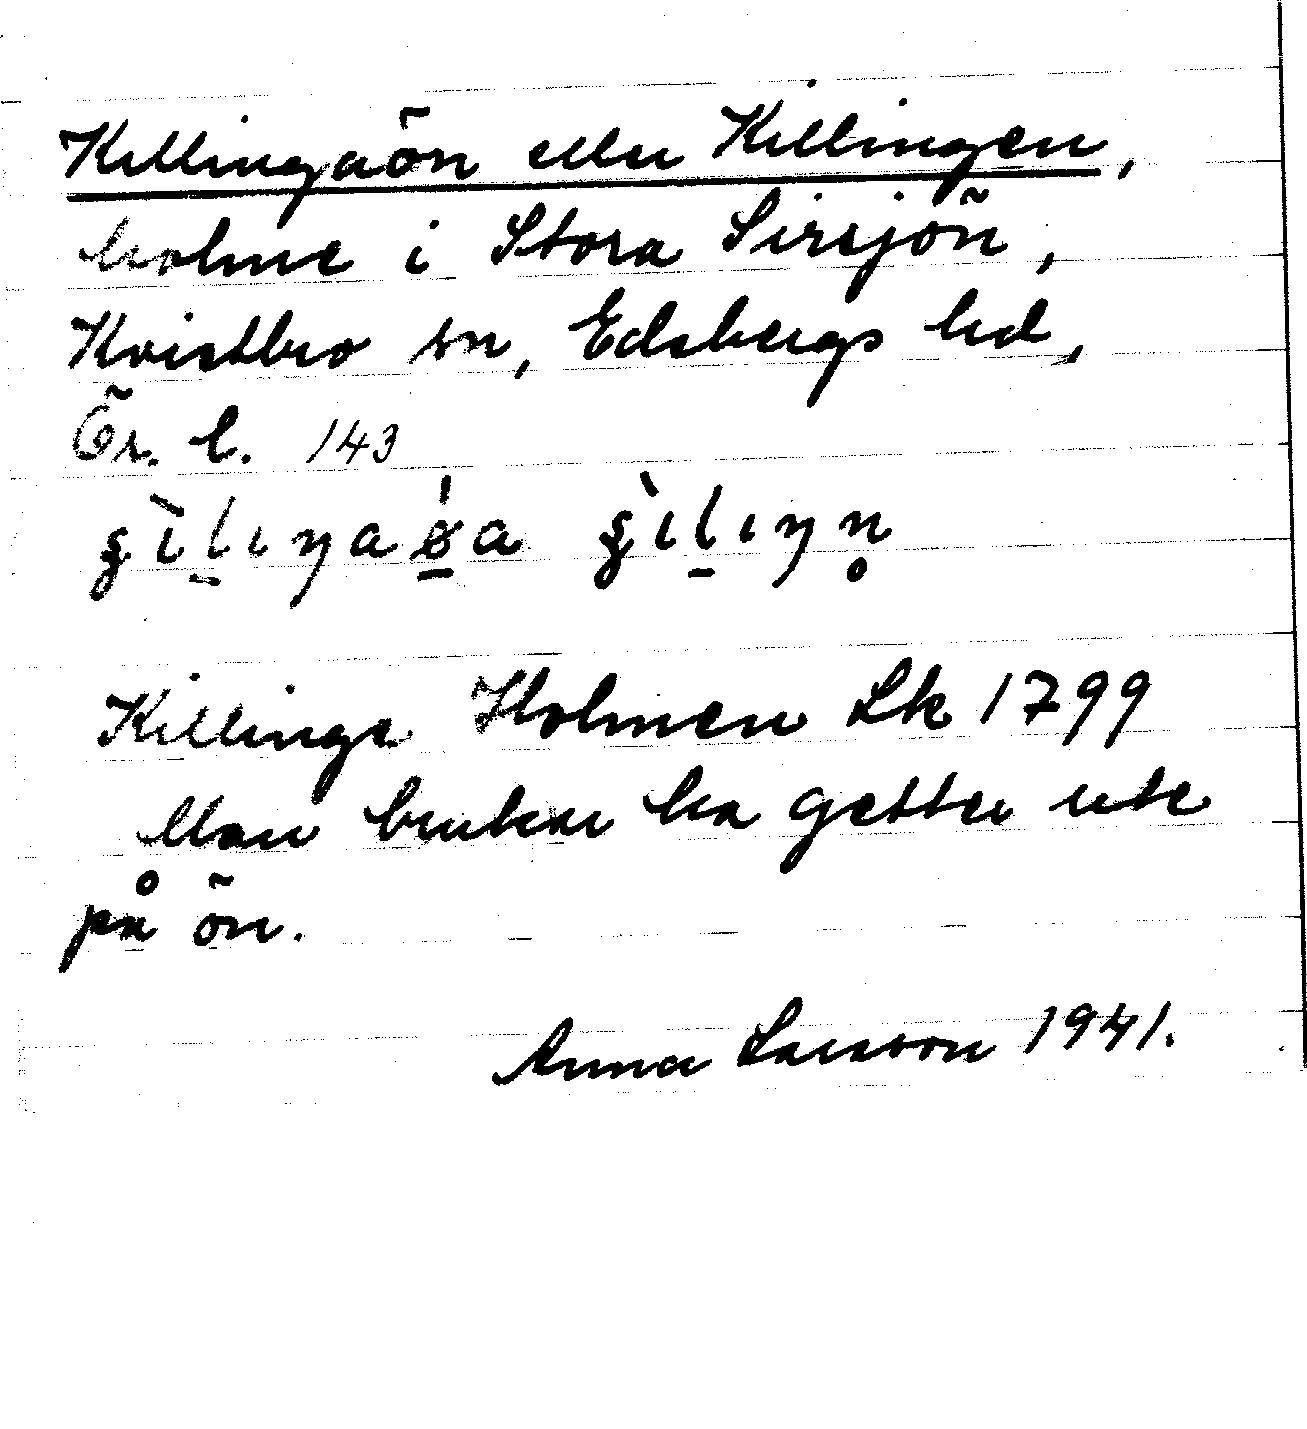 Killingaön eller Killingen,
holme i Stora Sirsjön,
Kvistbro sn, Edsbergs hd,
Ör. l. 143
Killinge Holmen Lk 1799
Man brukar ha getter ute
på ön.
Anna Larsson 1941.